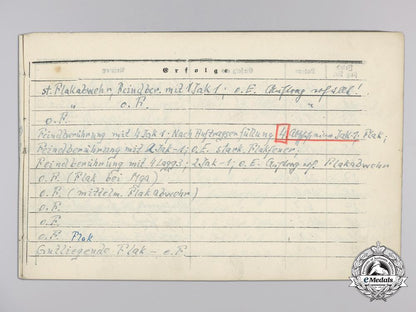 Erfolge
st. Flakabwehr, Feindber. mit 1 Jak 1; o.E. Auftrag
" o.F.
o.F.
Feindberührung mit 4 Jak 1; Nach Auftragserfüllung 4. Jak-1; Flak;
Feindberührung mit 2 Jak-1; o.E. stark. Flakfeuer;
Feindberührung mit 4 Lagg 3; 2 Jak-1; o.E. Flakabwehr
o.F. (Flak bei Mga)
o.F. (mittelm. Flakabwehr)
o.F.
o.F.
o.F. Flak
Gutliegende Flak - o.F.
eMedals